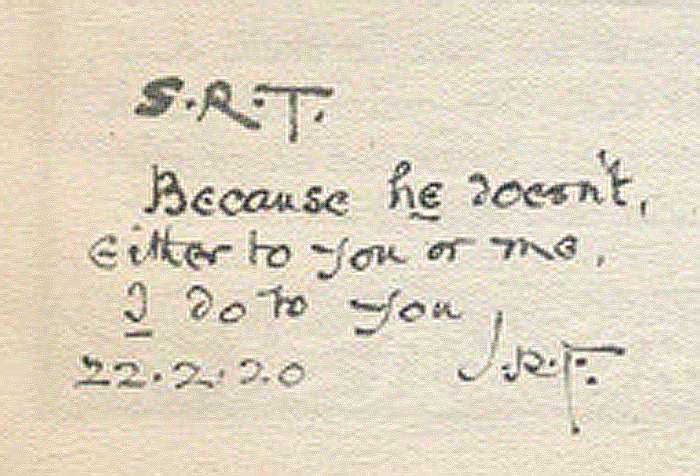 S.R.T.
Because he doesn't,
either to you or me,
I do to you
22.2.20 J.R.T.